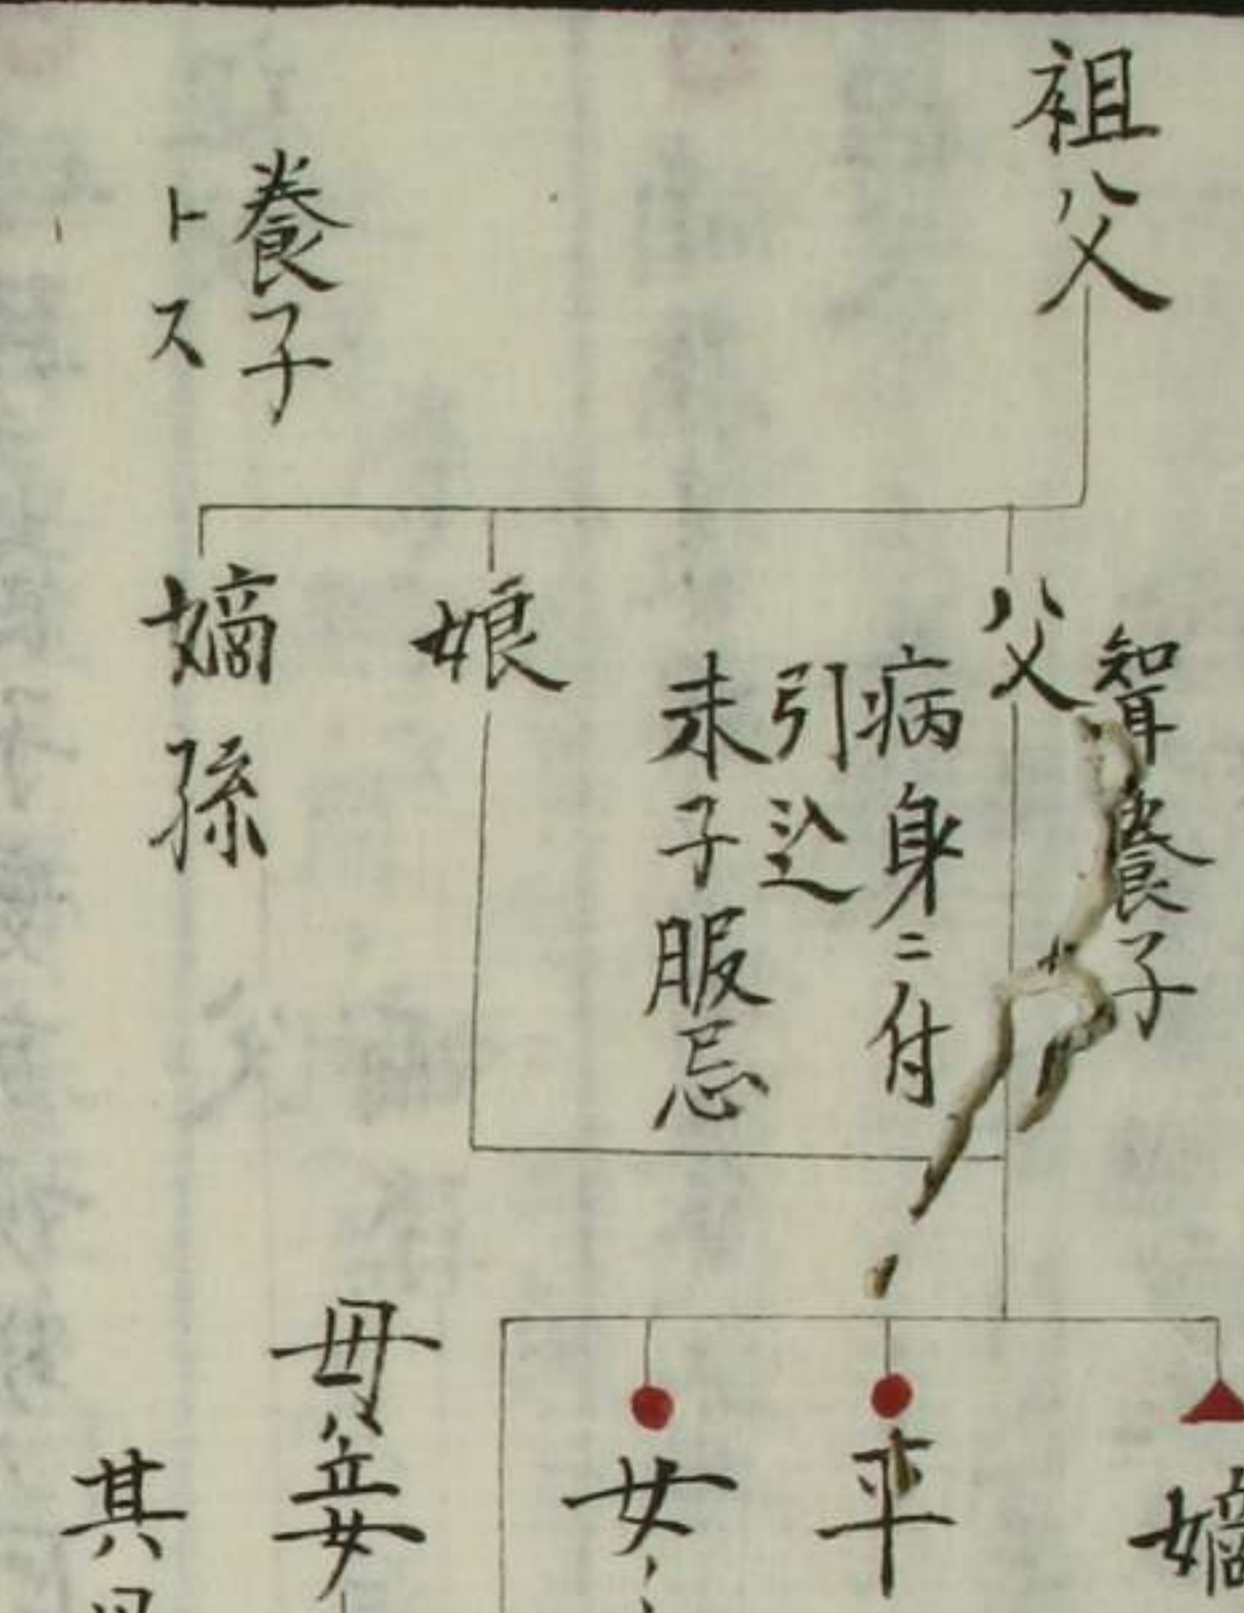 祖父
養子
トス
聟養子
父
病身ニ付
引込
未子服忌
娘
嫡孫
嫡
平
女
母ハ妾
其